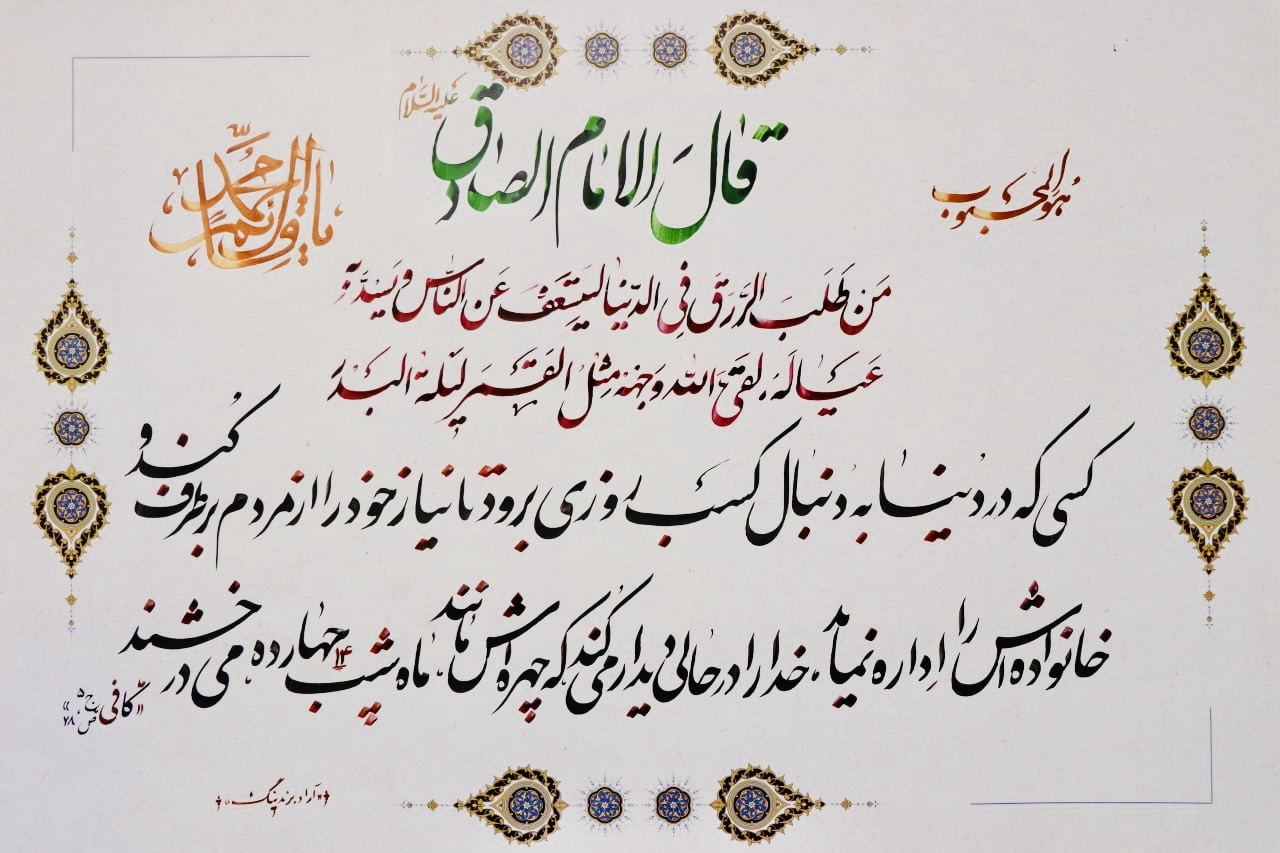 هُوَ المحبوب
قالَ الامام الصادق علیه السّلام
مَن طَلَبَ الرَّزقَ فِی الدّنیا عَن النّاس و
عَیالَه لقیَ الله وَجهه مِثلُ القَمَر لیلة البَدر
کسی که در دنیا به دنبال کسب روزی برود تا نیاز خود را از مردم برطرف کند و
خانواده‌اش را اداره نماید، خدا را در حالی دیدار می‌کند که چهره‌اش مانند ماه شب چهارده ۱۴ می‌درخشند
«کافی ج ۵ ص ۷۸»
«آراد برندینگ»